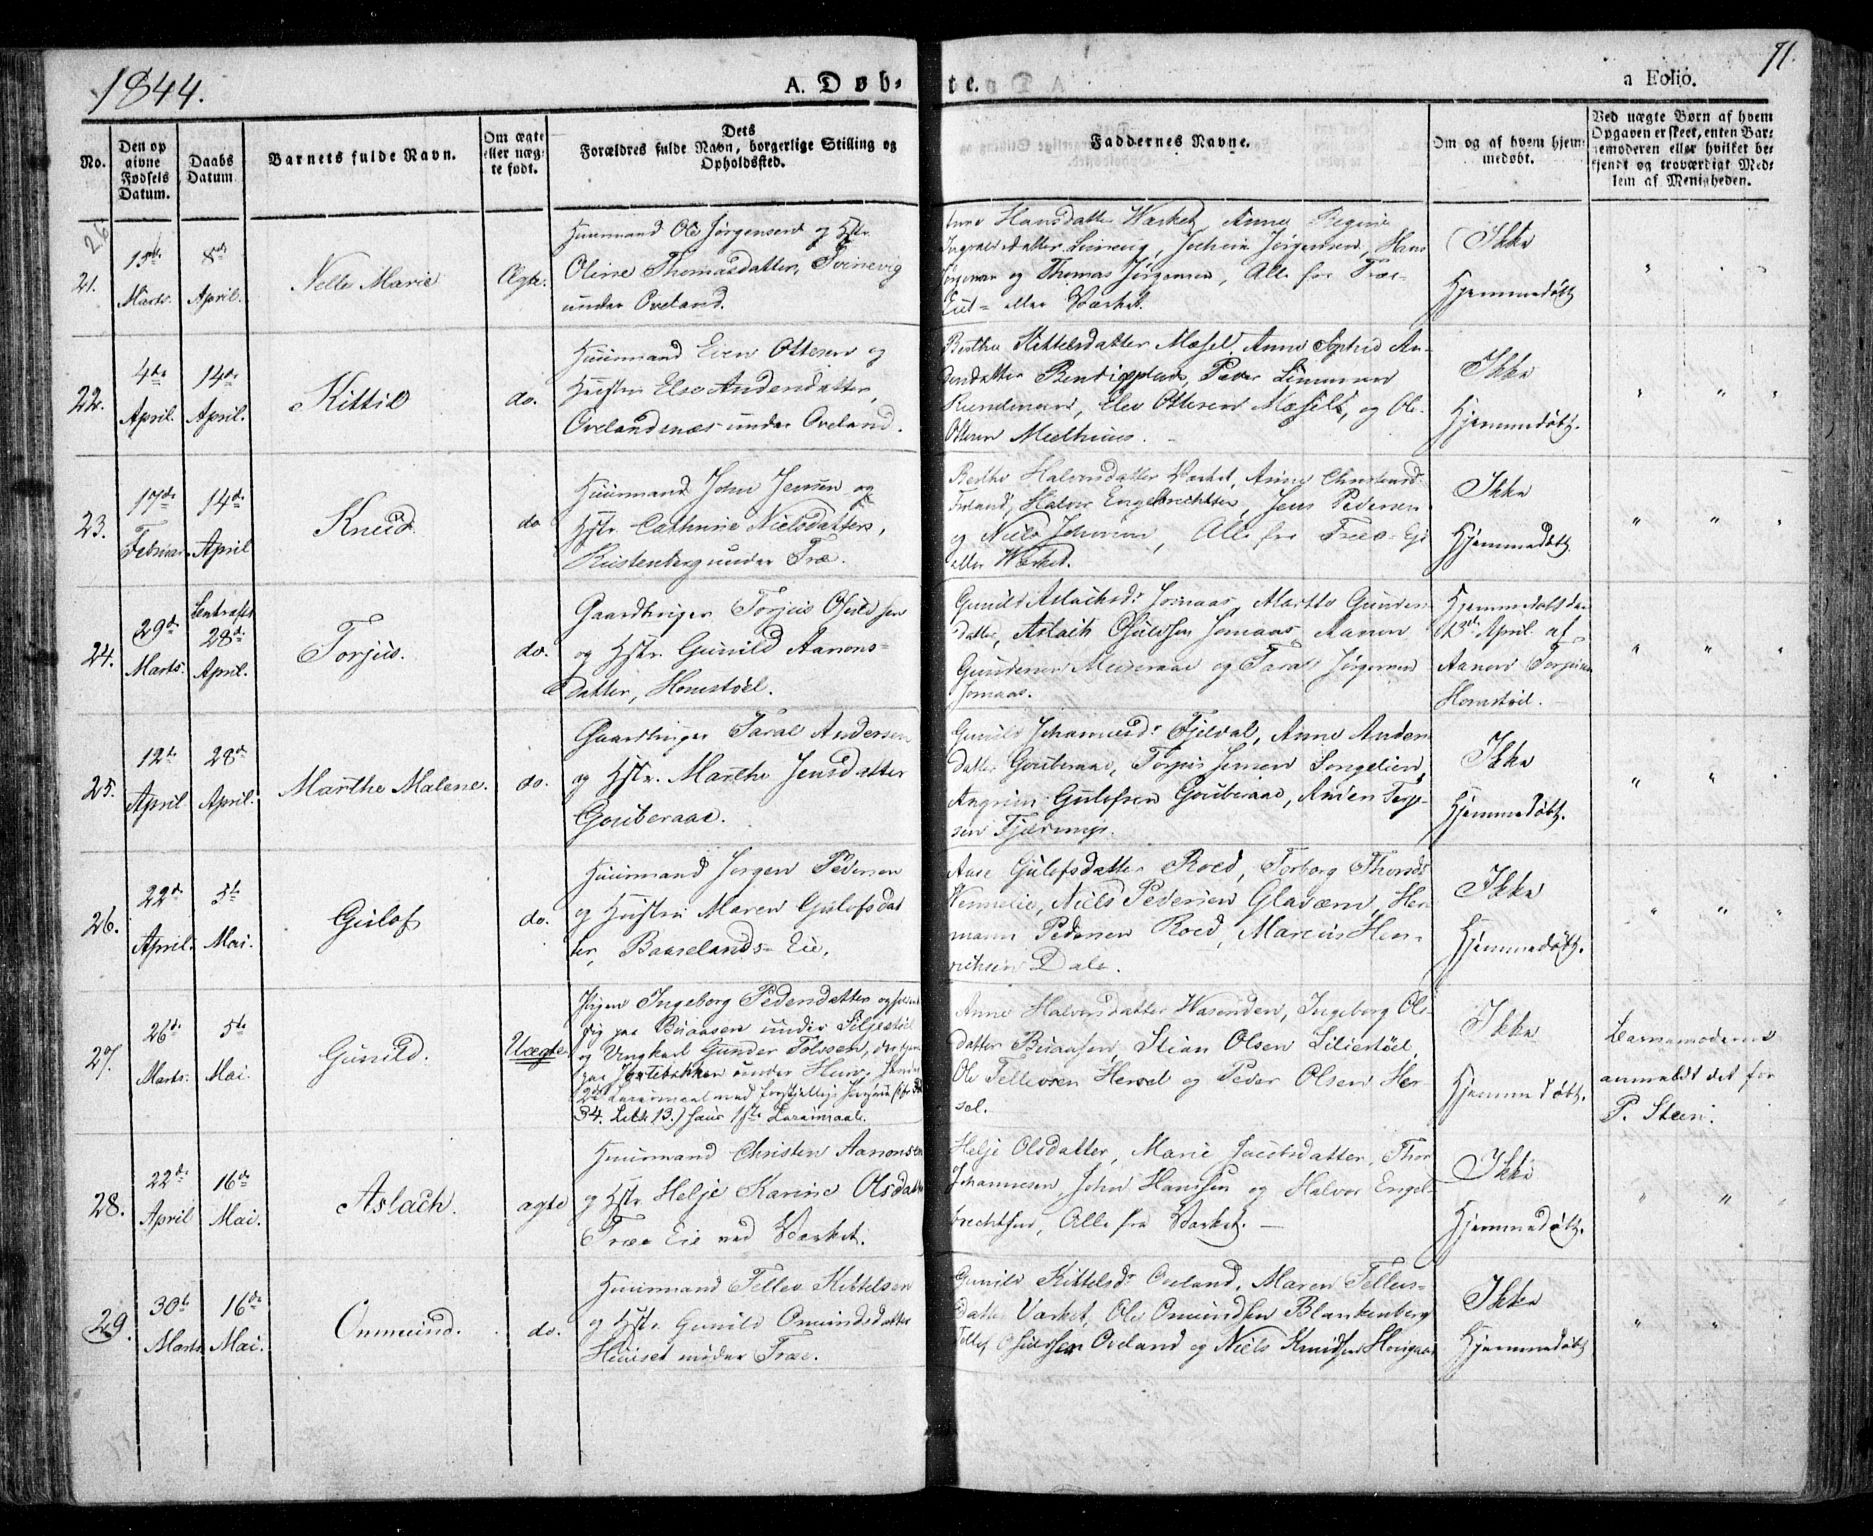 1844.
A. Døb-
te.
a Folio.
71.
No.
Den op
givne
Fødsels
Datum.
Daabs
Datum
Barnets fulde Navn.
Om ægte
eller uæg-
te født.
Dets
Forældres fulde Navn, borgerlige Stilling og
Opholdssted.
Faddernes Navne.
Om og af hvem hjem-
medøbt.
Ved uægte Børn af hvem
Opgaven er skeet, enten Bar-
nemoderen eller hvilket be-
kjendt og troværdigt Med-
lem af Menigheden.
26
21.
15de
Marts.
8de
April.
Nelle Marie
Ægte.
Huusmand Ole Jørgensen og Hstr.
Oline Thomasdatter, Svinevig
under Oveland.
Hansdatter Værket, Anne Regine
datter, Jochim Jørgensen, Hans
Jørgensen og Thomas Jørgensen, Alle fra Træ-
Eie eller Værket.
Ikke
Hjemmedøbt
22.
4de
April.
14de
April.
Kittil
do.
Huusmand Even Ottesen og
Hustru Else Andersdatter,
Ovelandsnæs under Oveland.
Berthe Kittelsdatter Mæsel, Anne Sophie An-
dersdatter, Peder Simonsen
Elev Ottesen Mæsel, og Ole
Ottesen
Ikke
Hjemmedøbt.
23.
17de
Februar.
14de
April
Knud.
do
Huusmand John Jensen og
Hstr. Cathrine Nielsdatter,
under Træ.
Berthe Halvorsdatter Værket, Anne
Halvor Engebrechtsen, Jens Pedersen
og Niels Johnsen, Alle fra Træe-Eie
eller Værket.
Ikke
Hjemmedøbt
24.
29de
Marts.
28de
April.
Torjus.
do.
Gaardbruger Torjus Osuldsen
og Hstr. Gunild Aanons-
datter, Homstøel.
Gunild Aslachsdr Jomaas, Marthe Gunders-
datter, Aslach Osuldsen Jomaas, Aanon
Gundersen og Taral Jørgensen
Jomaas.
Hjemmedøbt den
13de April af
Aanon Torjusen
Homstøel.
25.
12te
April
28de
April.
Marthe Malene.
do.
Gaardbruger Taral Andersen
og Hstr. Marthe Jensdatter
Gouberaae.
Gunild Johannesdr Fjeldal, Anne Anders-
datter Gouberaae, Torjus Jensen Songelien,
Angrim Gulofsen Gouberaae, Anders Terje-
sen
Ikke
Hjemmedøbt.
26.
22de
April.
5te
Mai.
Gulof
do.
Huusmand Jørgen Pedersen
og Hustru Maren Gulofsdat
ter, Baaselands-Eie.
Aase Gulofsdatter Roed, Torborg Thorsdr
Vennelie, Niels Pedersen Glavæen, Her-
mann Pedersen Roed, Marcus Hen-
richsen Dale.
Ikke
Hjemmedøbt.
27.
26de
Marts.
5te
Mai.
Gunild.
Uægte
Pigen Ingeborg Pedersdatter
sig paa Buaasen under Siljestøel
og Ungkarl Gunder Tolvsen,
Anne Halvorsdatter Vasenden, Ingeborg Ols-
datter Buaasen, Stian Olsen Liliestøel,
Ole Tellevsen Hersel og Peder Olsen Her-
sel.
Ikke
Hjemmedøbt.
Barnemoderen
anmeldt det for
P. Steen.
28.
22de
April
16de
Mai.
Aslach.
ægte
Huusmand Christen Aanonsen
og Hstr Helje Karine Olsdatter
Træe Eie ved Værket.
Helje Olsdatter, Marie Jacobsdatter, Thor
Johannesen, John Hansen og Halvor Engel-
brechtsen, Alle fra Værket.
Ikke
Hjemmedøbt.
29.
30te
Marts
16de
Mai.
Ommund.
do.
Huusmand Tellev Kittelsen
og Hstr. Gunild Omundsdatter
Huuset under Træe.
Gunild Kittelsdr Oveland, Maren Tellevs-
datter Værket, Ole Omundsen Blankenberg
Tellef Osuldsen Oveland og Niels Knudsen
Ikke
Hjemmedøbt